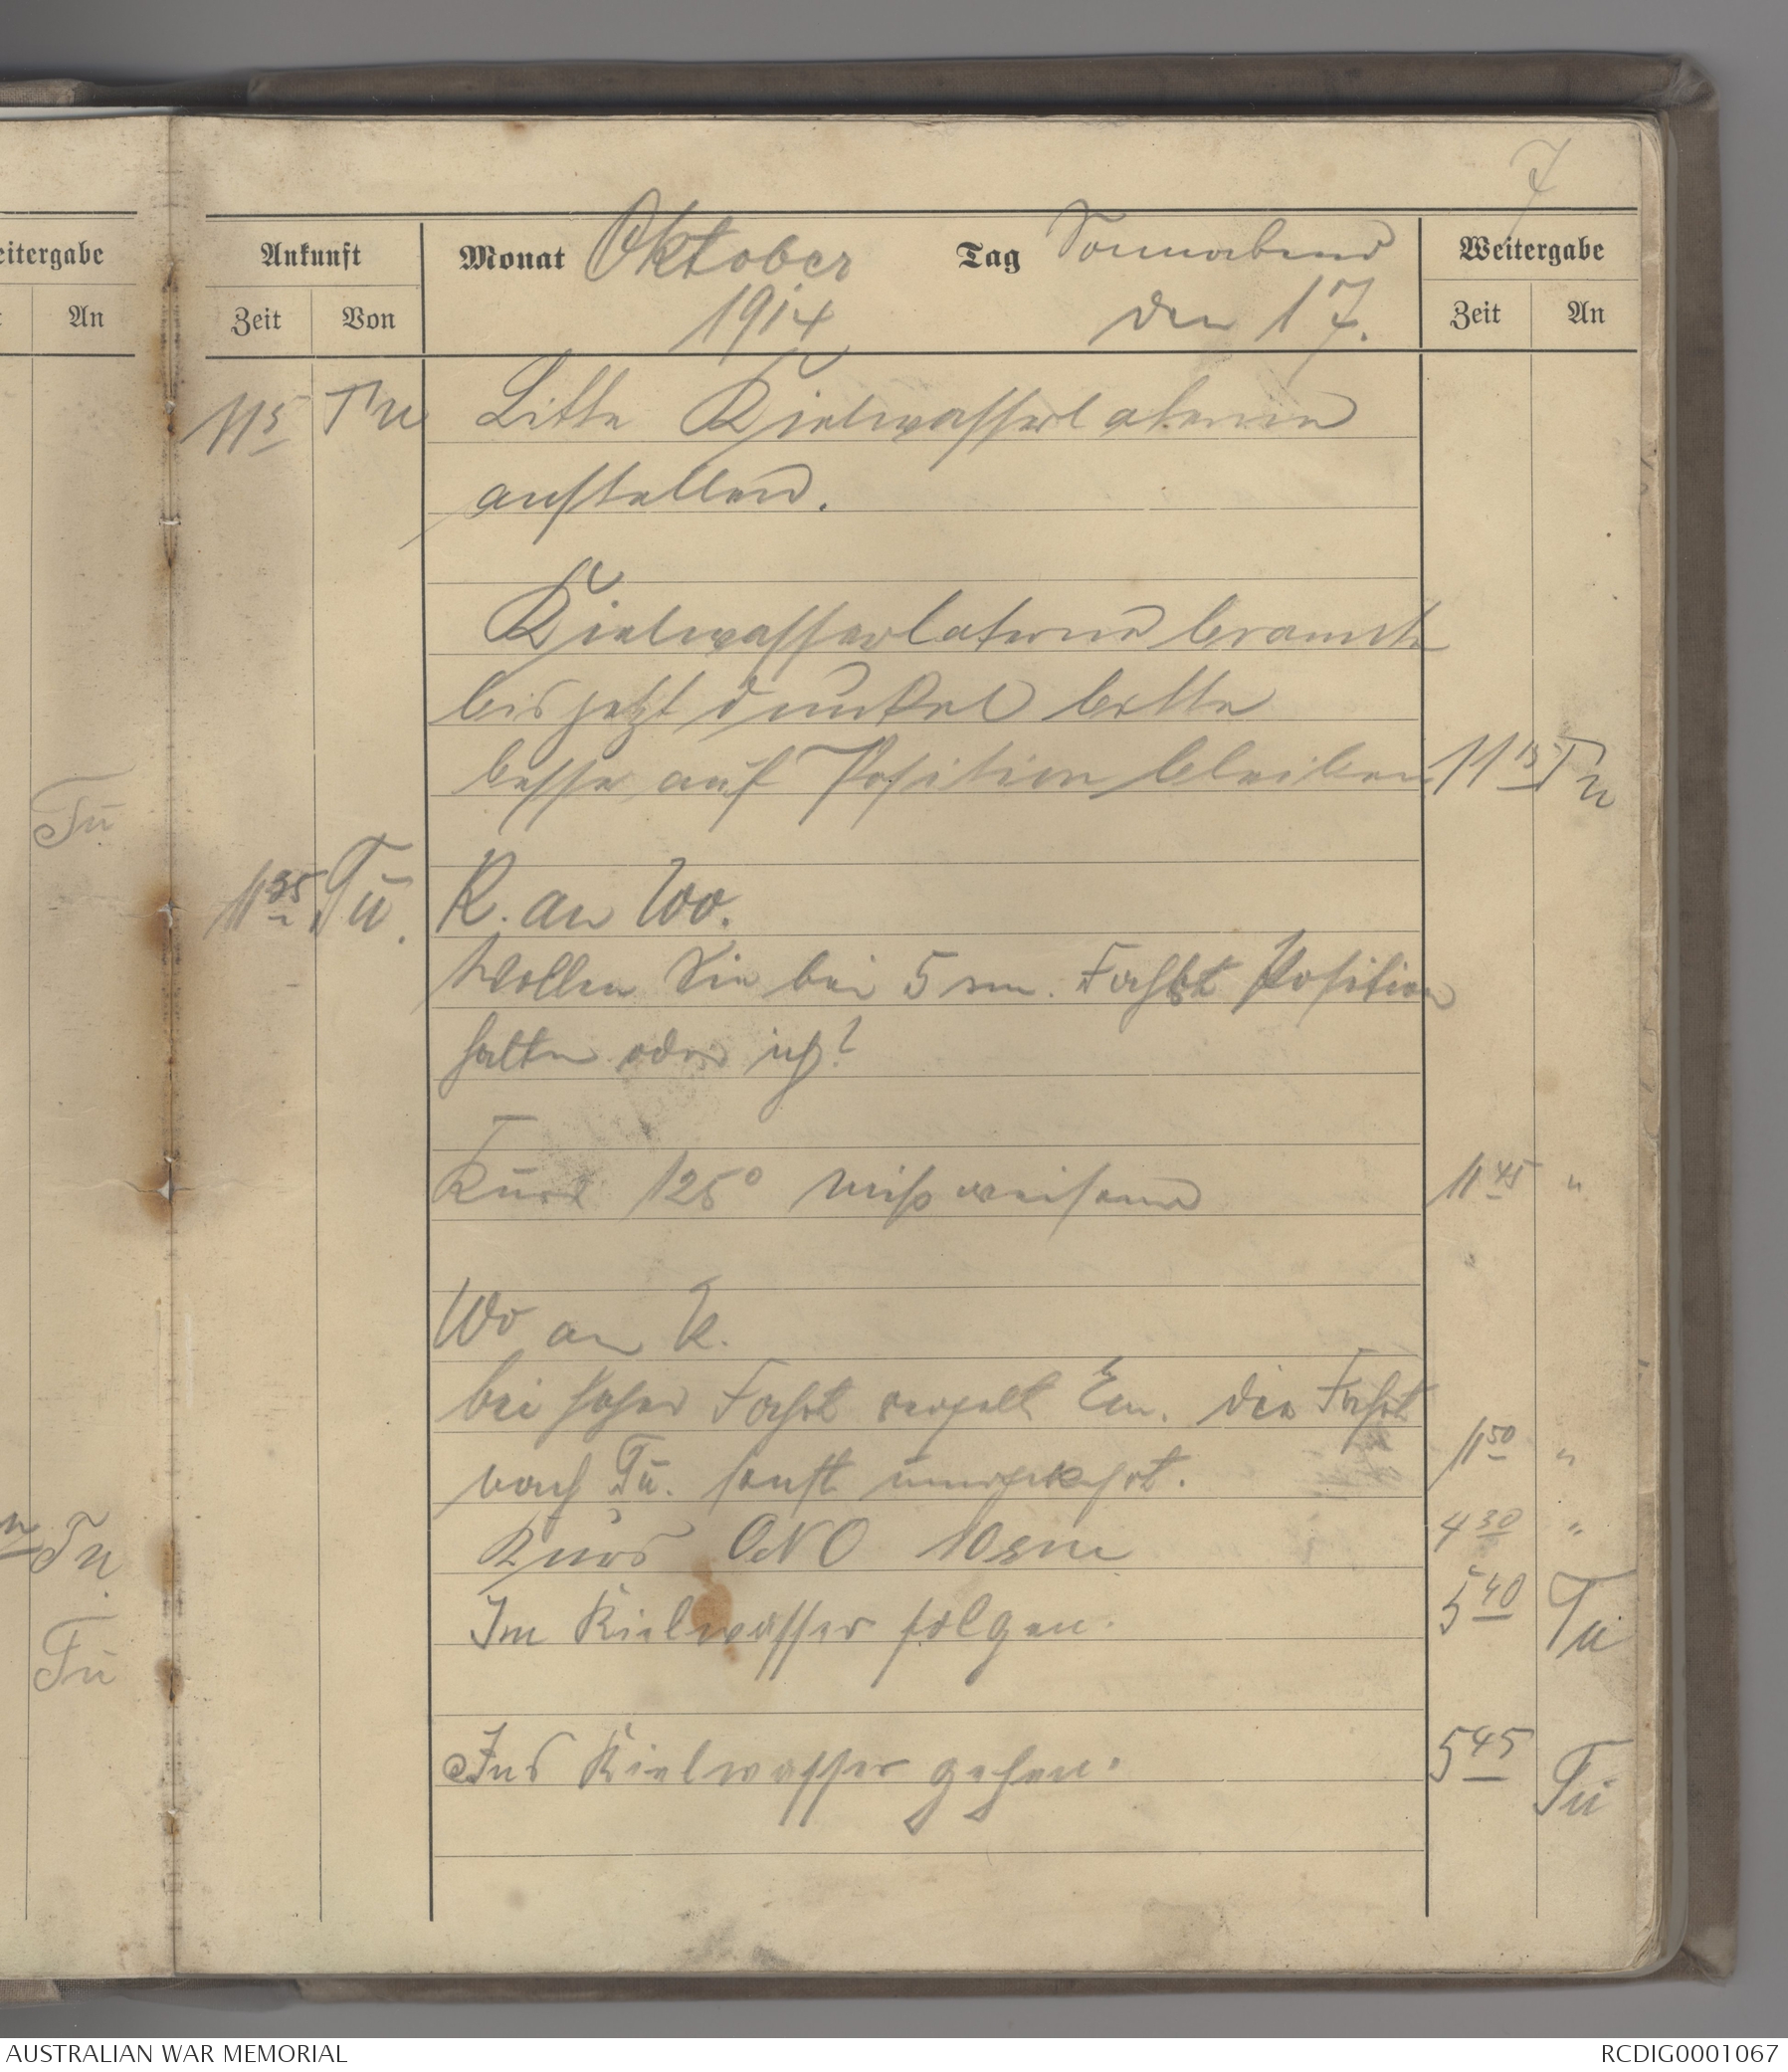 7
eitergabe
An
Tü
Tü
Tü
Ankunft
Zeit
Von
Monat Oktober
1914
Tag Sonnabend
den 17.
Weitergabe
Zeit
An
11 5 Tü Bitte Kielwasserlaterne
anstellen.
Kielwasserlaterne brannte
bis jetzt dunkel bitte
besser auf Position bleiben 11 15 Tü
11 35 Tü. K. an Wo.
Wollen Sie bei 5 sm. Fahrt Position
halten oder ich?
Kurs 125° mißweisend 11 45 "
Wo an K.
bei hoher Fahrt regelt Em. die Fahrt
nach Tü. sonst umgekehrt. 11 50 "
Kurs ONO 10 sm 4 30 "
Im Kielwasser folgen. 5 40 Tü
Ins Kielwasser gehen. 5 45 Tü
AUSTRALIAN WAR MEMORIAL
RCDIG0001067